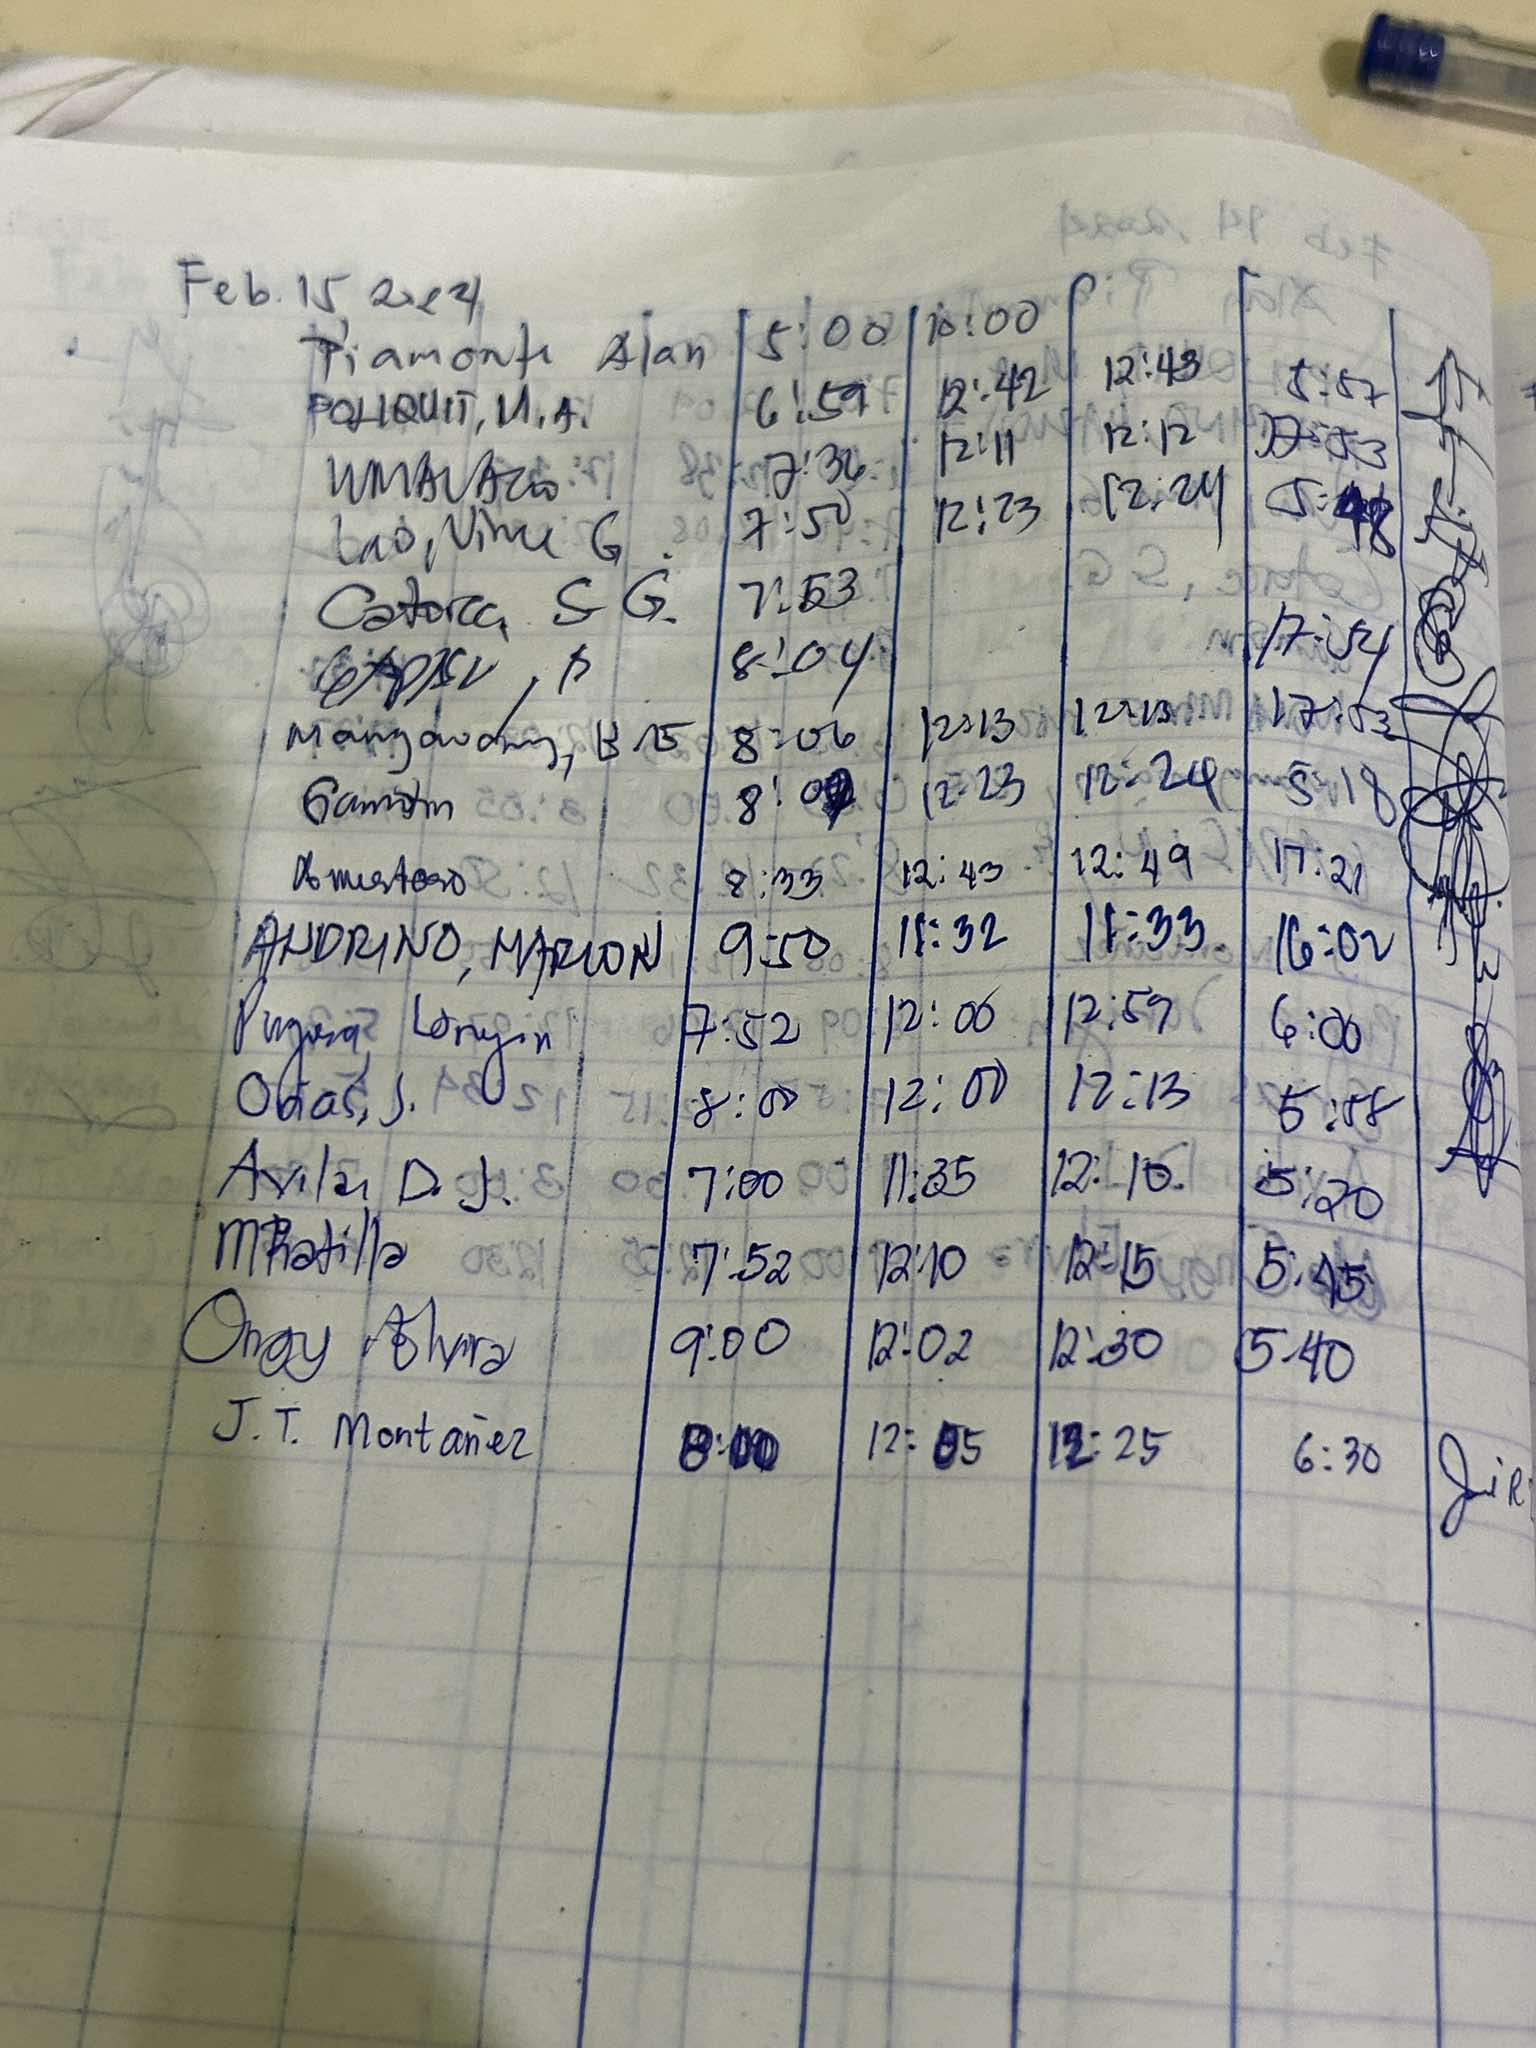 Feb. 15, 2024
Piamonte Alan 5:00 10:00
POLIQUIT, M.A. 6:59 12:42 12:43 5:57
7:36 12:11 12:12 17:53
Lao, Vince G. 7:50 12:23 12:24 5:48
Catorce, S G. 7:53
8:04 17:54
8:06 12:13 12:13 17:53
8:09 12:23 12:24 5:18
8:33 12:43 12:49 17:21
ANDRINO, MARION 9:50 11:32 11:33 16:02
7:52 12:00 12:59 6:00
Obias, J. 8:00 12:00 12:13 5:58
Avila, D. J. 7:00 11:35 12:10 5:20
MRatilla 7:52 12:10 12:15 5:45
Ongy 9:00 12:02 12:30 5:40
J.T. Montañez 8:00 12:05 12:25 6:30